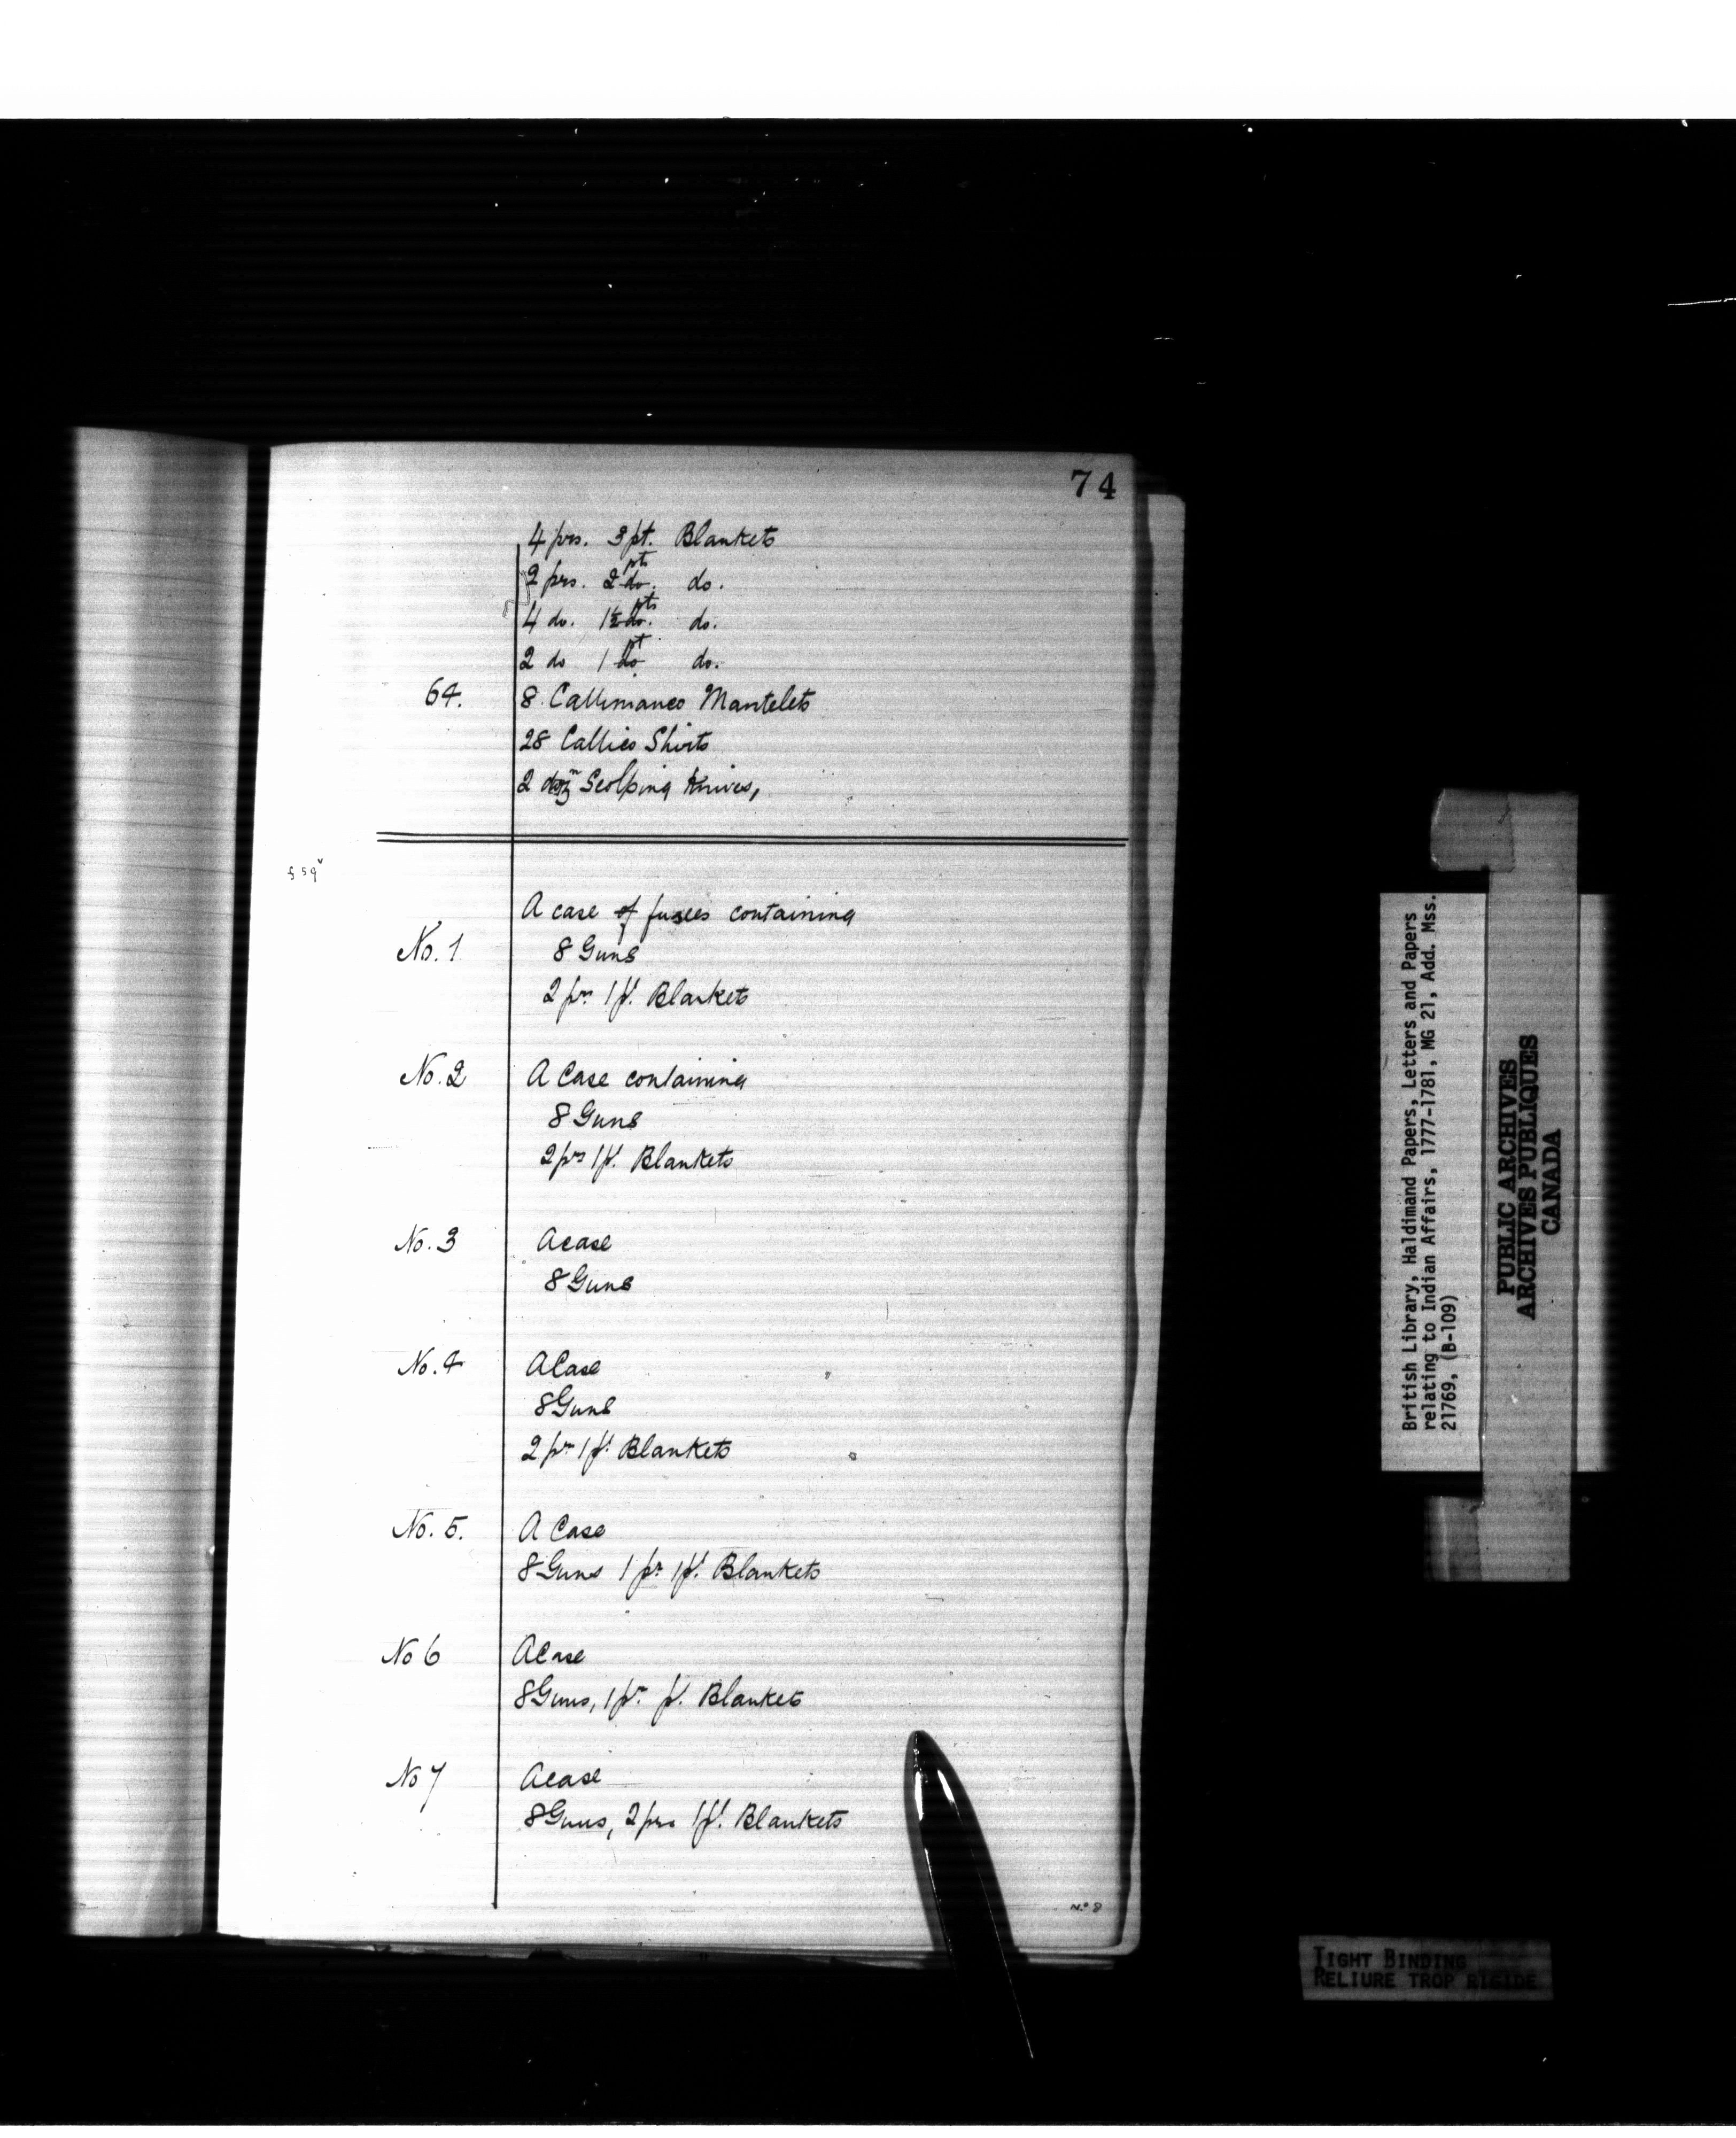 74
4 prs. 3 pt. Blankets
2 prs. 2 do. pts do.
4 do. 1½ do. pts do.
2 do 1 do pt do.
64. 8 Callimanco Mantelets
28 Callico Shirts
2 dozn Scolping Knives,
f 59v
A case of fusees containing
No. 1 8 Guns
2 prs 1 pt. Blankets
No. 2 A Case containing
8 Guns
2 prs 1 pt. Blankets
No. 3 A case
8 Guns
No. 4 A Case
8 Guns
2 pr 1 pt Blankets
No. 5. A Case
8 Guns 1 pr 1 pt. Blankets
No 6 A Case
8 Guns, 1 pr pt. Blankets
No 7 A case
8 Guns, 2 prs 1 pt. Blankets
No 8
British Library, Haldimand Papers, Letters and Papers
relating to Indian Affairs, 1777-1781, MG 21, Add. Mss.
21769, (B-109)
PUBLIC ARCHIVES
ARCHIVES PUBLIQUES
CANADA
TIGHT BINDING
RELIURE TROP RIGIDE